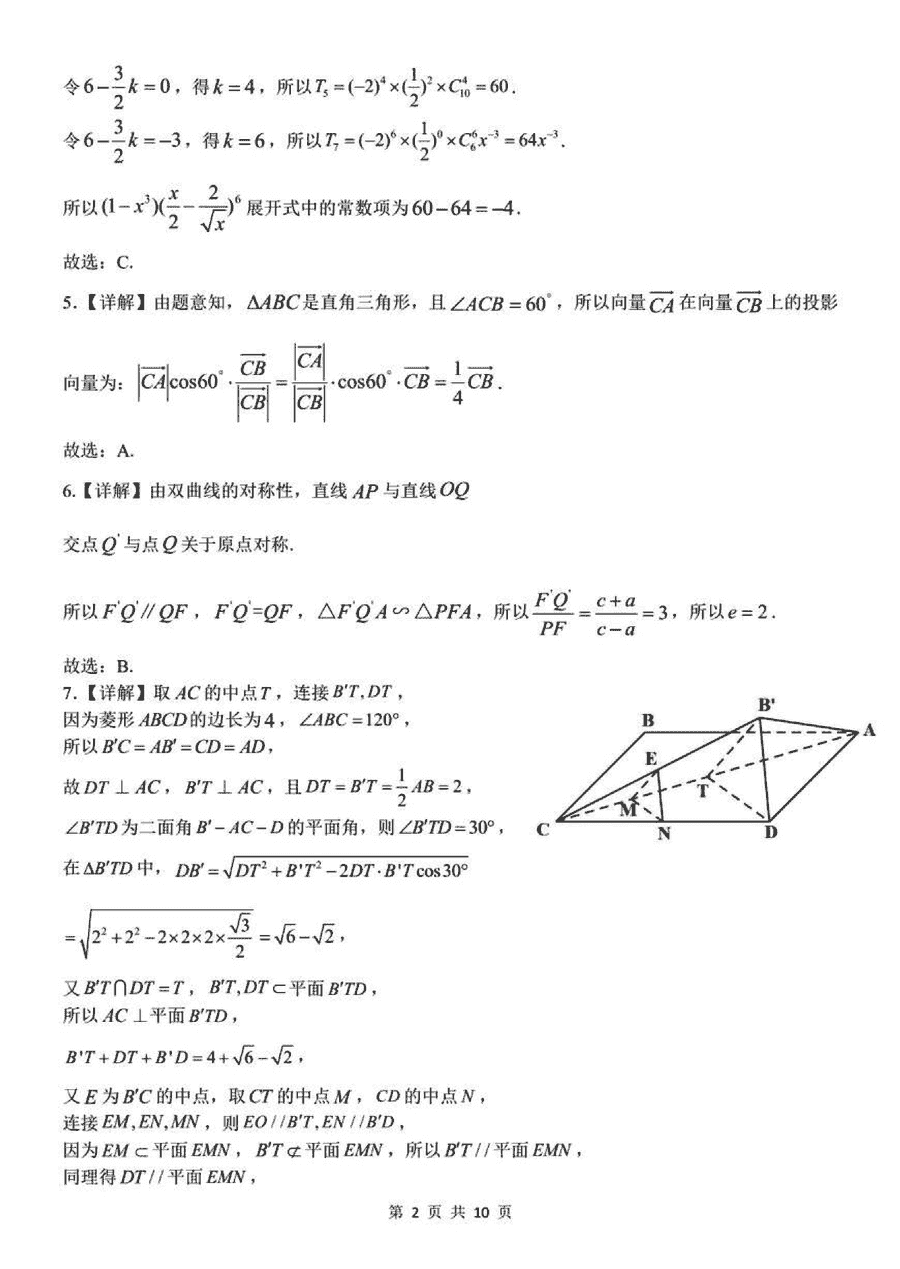 令 6 − 3/2 k = 0，得 k = 4，所以 T₅ = (−2)⁴ × (1/2)² × C₁₀⁴ = 60．
令 6 − 3/2 k = −3，得 k = 6，所以 T₇ = (−2)⁶ × (1/2)⁰ × C₆⁶ x⁻³ = 64x⁻³．
所以 (1 − x³)(x/2 − 2/√x)⁶ 展开式中的常数项为 60 − 64 = −4．
故选：C.
5.【详解】由题意知，ΔABC 是直角三角形，且 ∠ACB = 60°，所以向量 \overrightarrow{CA} 在向量 \overrightarrow{CB} 上的投影
向量为：|\overrightarrow{CA}|cos60° · \overrightarrow{CB}/|\overrightarrow{CB}| = |\overrightarrow{CA}|/|\overrightarrow{CB}| · cos60° · \overrightarrow{CB} = 1/4 \overrightarrow{CB}．
故选：A.
6.【详解】由双曲线的对称性，直线 AP 与直线 OQ
交点 Q' 与点 Q 关于原点对称.
所以 F'Q' // QF，F'Q'=QF，△F'Q'A ∽ △PFA，所以 F'Q'/PF = (c + a)/(c − a) = 3，所以 e = 2．
故选：B.
7.【详解】取 AC 的中点 T，连接 B′T, DT，
因为菱形 ABCD 的边长为 4，∠ABC = 120°，
所以 B′C = AB′ = CD = AD，
故 DT ⊥ AC，B′T ⊥ AC，且 DT = B′T = 1/2 AB = 2，
∠B′TD 为二面角 B′ − AC − D 的平面角，则 ∠B′TD = 30°，
在 ΔB′TD 中，DB′ = √(DT² + B'T² − 2DT · B'T cos30°)
= √(2² + 2² − 2×2×2×√3/2) = √6 − √2，
又 B′T ⋂ DT = T，B′T, DT ⊂ 平面 B′TD，
所以 AC ⊥ 平面 B′TD，
B'T + DT + B'D = 4 + √6 − √2，
又 E 为 B′C 的中点，取 CT 的中点 M，CD 的中点 N，
连接 EM, EN, MN，则 EO / /B′T, EN / /B′D，
因为 EM ⊂ 平面 EMN，B′T ⊄ 平面 EMN，所以 B′T / / 平面 EMN，
同理得 DT / / 平面 EMN，
B'
B
A
E
T
M
C
N
D
第 2 页 共 10 页